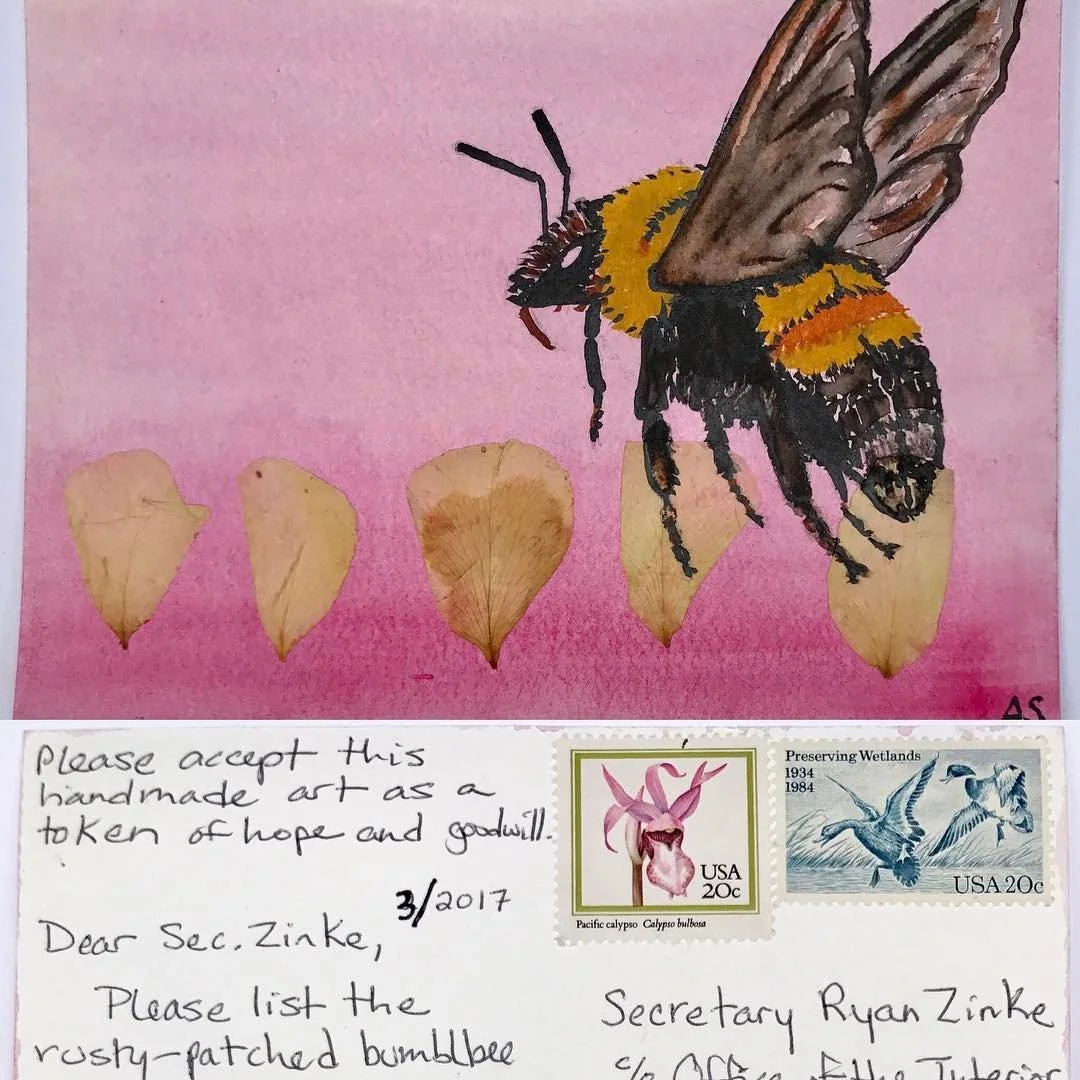 AS
Please accept this
handmade art as a
token of hope and goodwill.
3/2017
Dear Sec. Zinke,
Please list the
rusty-patched bumblbee
USA
20c
Pacific calypso Calypso bulbosa
Preserving Wetlands
1934
1984
USA 20c
Secretary Ryan Zinke
c/o Office of the Interior